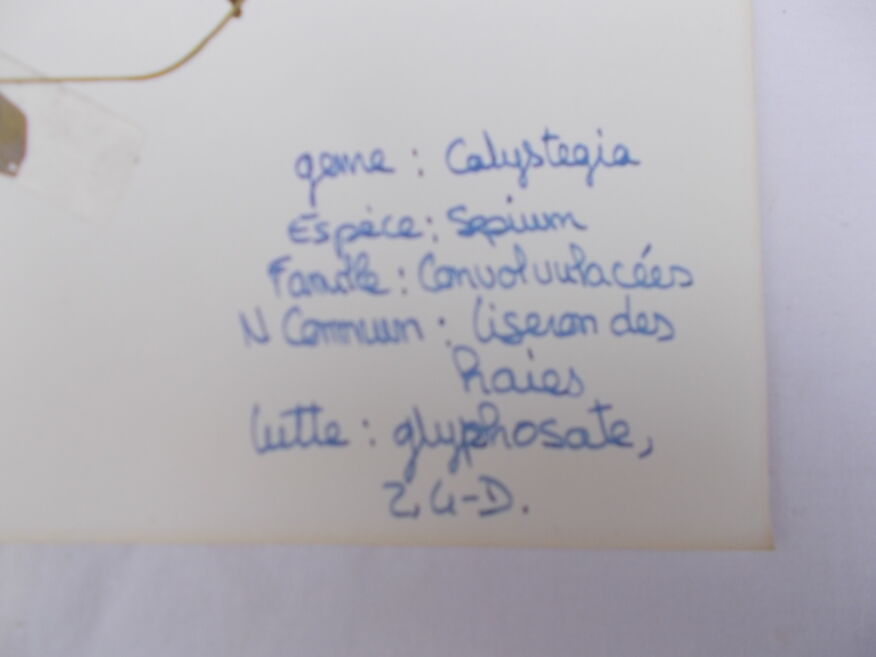 genre : Calystegia
Espèce : Sepium
Famille : Convolvulacées
N Commun : liseron des
haies
lutte : glyphosate,
2,4-D.